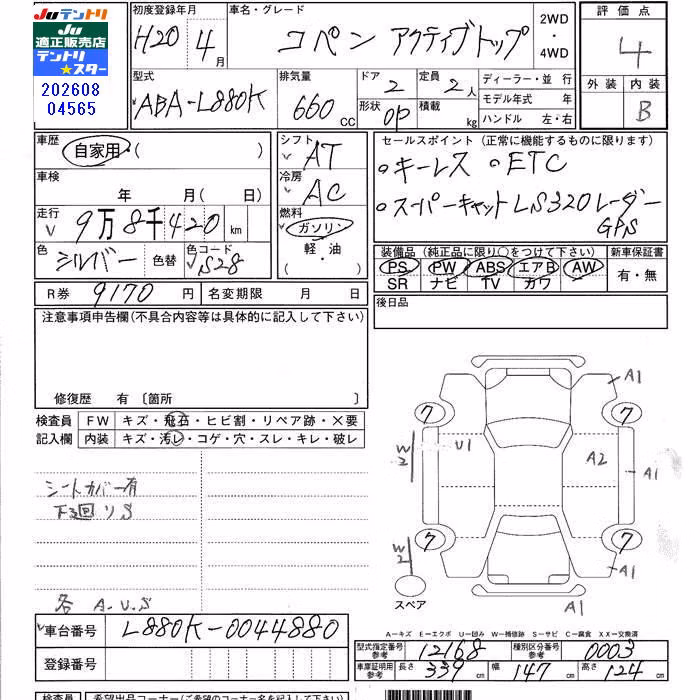 JUテントリ
JU
適正販売店
テントリ
★スター
202608
04565
初度登録年月 車名・グレード 2WD ・ 4WD 評価点
H20 4月 コペン アクティブトップ 4
型式 排気量 ドア 定員 ディーラー・並行 外装 内装
ABA-L880K 660 CC 2 2人 モデル年式 年 B
形状 OP 積載 kg ハンドル 左・右
車歴 シフト セールスポイント (正常に機能するものに限ります)
自家用・( ) AT ○キーレス ○ETC
車検 冷房 ○スーパーキャット LS320レーダー
年 月( 日) AC GPS
走行 燃料
9万8千420 km ガソリン
軽・油
色 シルバー 色替 色コード S28 ( ・ )
装備品 (純正品に限り○をつけて下さい) 新車保証書
PS PW ABS エアB AW 有・無
SR ナビ TV カワ
R券 9170 円 名変期限 月 日
後日品
注意事項申告欄(不具合内容等は具体的に記入して下さい)
修復歴 有 〔箇所 〕
検査員 FW キズ・飛石・ヒビ割・リペア跡・×要
記入欄 内装 キズ・汚レ・コゲ・穴・スレ・キレ・破レ
シートカバー有
下廻リS
各 A.U.S
A1
7 7
W2 U1 A2 A1
7 7
W2 A1
スペア A1
A―キズ E―エクボ U―凹み W―補修跡 S―サビ C―腐食 XX―交換済
車台番号 L880K-0044880
登録番号
型式指定番号 参考 12168 種別区分番号 参考 0003
車庫証明用 参考 長さ 339 cm 幅 147 cm 高さ 124 cm
検査員 希望出品コーナー(ご希望のコーナー名を記入下さい)